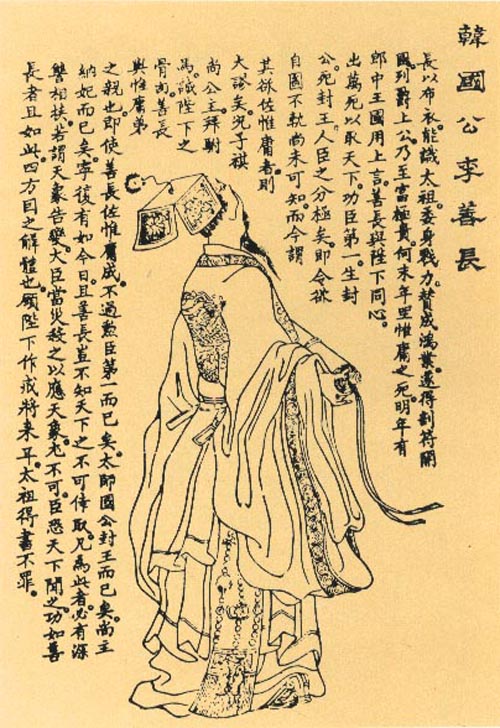 韓國公李善長
長以布衣能識太祖。委身戮力。贊成鴻業。遂得剖符開
國列爵上公。乃至富極貴。何末年里惟庸之死。明年有
郎中王國用上言。善長與陛下同心。
出萬死以取天下。功臣第一。生封
公。死封王。人臣之分極矣。即令欲
自圖不軌。尚未可知。而今謂
其欲佐惟庸者。則
大謬矣。況子祺
尚公主拜駙
馬。誠陛下之
骨肉。善長
與惟庸。弟
之親也。即使善長佐惟庸成。不過勲臣第一而已矣。太師國公封王而已矣。尚主
納妃而已矣。寧復有如今日。且善長豈不知天下之不可倖取。凡為此者。必有深
讐相扶。若謂天象告變。大臣當災。殺之以應天象。尤不可。臣恐天下聞之。功如善
長者且如此。四方因之解體也。願陛下作戒將來耳。太祖得書不罪。